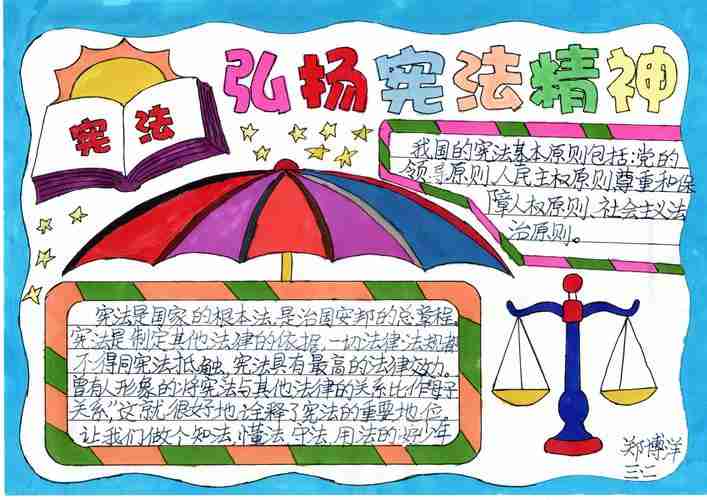 弘扬宪法精神
宪法
我国的宪法基本原则包括:党的
领导原则、人民主权原则、尊重和保
障人权原则、社会主义法
治原则。
宪法是国家的根本法,是治国安邦的总章程,
宪法是制定其他法律的依据,一切法律、法规都
不得同宪法抵触,宪法具有最高的法律效力。
曾有人形象的将宪法与其他法律的关系比作"母子
关系,"这就很好地诠释了宪法的重要地位。
让我们做个知法,懂法,守法,用法的好少年
郑博洋
三.二